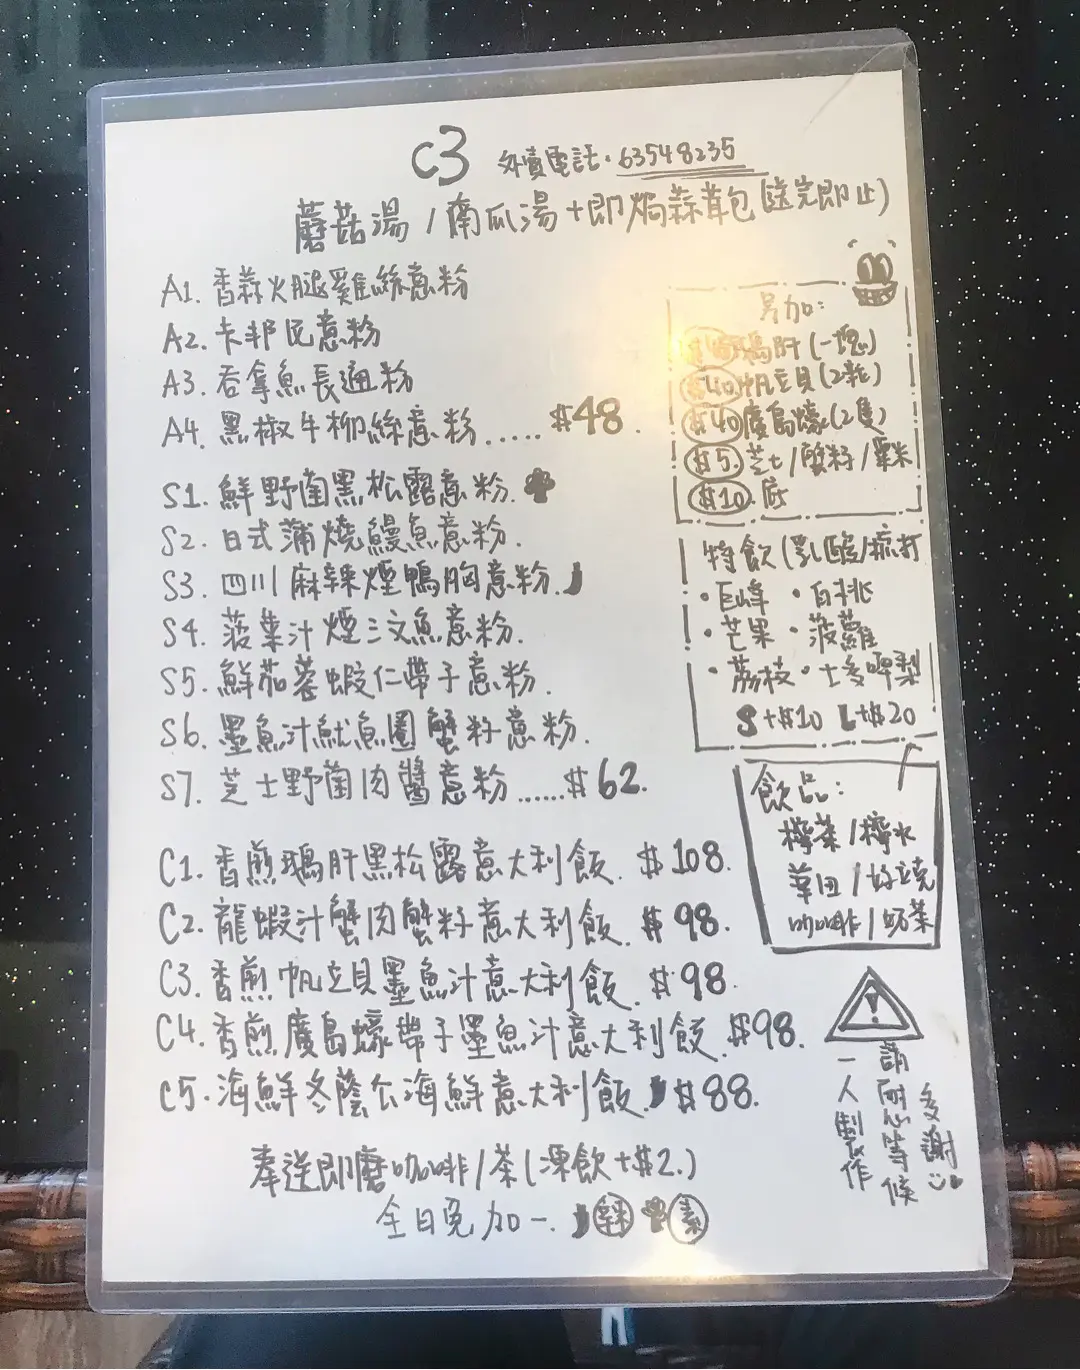 C3 外賣電話·63548235
蘑菇湯/南瓜湯+即焗蒜茸包(送完即止)
A1. 香蒜火腿雞絲意粉
A2. 卡邦尼意粉
A3. 吞拿魚長通粉
A4. 黑椒牛柳絲意粉.....$48.
S1. 鮮野菌黑松露意粉.
S2. 日式蒲燒鰻魚意粉.
S3. 四川麻辣煙鴨胸意粉.
S4. 菠菜汁煙三文魚意粉.
S5. 鮮茄蓉蝦仁帶子意粉.
S6. 墨魚汁魷魚圈蟹籽意粉.
S7. 芝士野菌肉醬意粉......$62.
C1. 香煎鵝肝黑松露意大利飯. $108.
C2. 龍蝦汁蟹肉蟹籽意大利飯. $98.
C3. 香煎帆立貝墨魚汁意大利飯. $98.
C4. 香煎廣島蠔帶子墨魚汁意大利飯. $98.
C5. 海鮮冬蔭公海鮮意大利飯. $88.
奉送即磨咖啡/茶(凍飲+$2.)
全日免加一. 辣 素
另加:
鵝肝(一塊)
$40帆立貝(2粒)
$40廣島蠔(2隻)
$5.芝士/蟹籽/粟米
$10.底
特飲(乳酸/梳打
·巨峰 ·白桃
·芒果 ·菠蘿
·荔枝·士多啤梨
S+$10 L+$20
飲品:
檸茶/檸水
華田/好立克
咖啡/奶茶
!
一人製作
請耐心等候
多謝